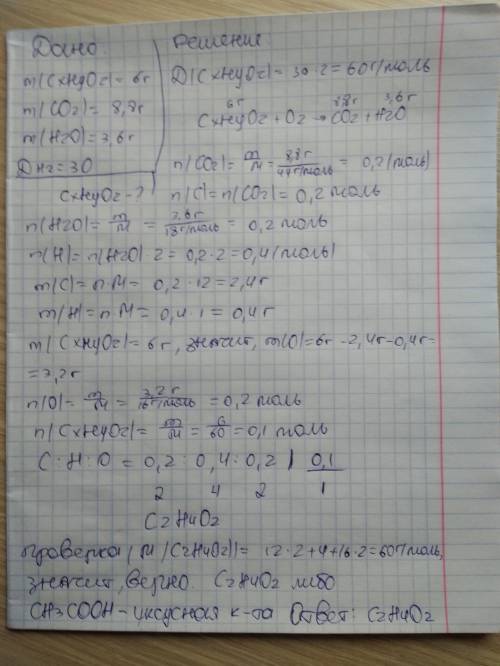 Дано: Решение
m(CxHyOz)= 6г
D(CxHyOz)= 30·2=60г/моль
m(CO2)= 8,8г
6г 8,8г 3,6г
CxHyOz+O2→CO2+H2O
m(H2O)=3,6г
DH2=30
n(CO2)= m/M = 8,8г/44г/моль = 0,2(моль)
CxHyOz-?
n(C)=n(CO2)=0,2моль
n(H2O)= m/M = 3,6г/18г/моль = 0,2моль
n(H)=n(H2O)·2=0,2·2=0,4(моль)
m(C)=n·M= 0,2·12=2,4г
m(H)=n·M= 0,4·1=0,4г
m(CxHyOz)=6г, значит, m(O)=6г-2,4г-0,4г=
=3,2г
n(O)= m/M = 3,2г/16г/моль =0,2моль
n(CxHyOz)= m/M = 6/60 =0,1моль
C:H:O = 0,2:0,4:0,2 | 0,1
2 4 2 1
C2H4O2
проверка(M(C2H4O2))= 12·2+4+16·2=60г/моль,
значит, верно. C2H4O2 либо
CH3COOH-уксусная к-та Ответ: C2H4O2